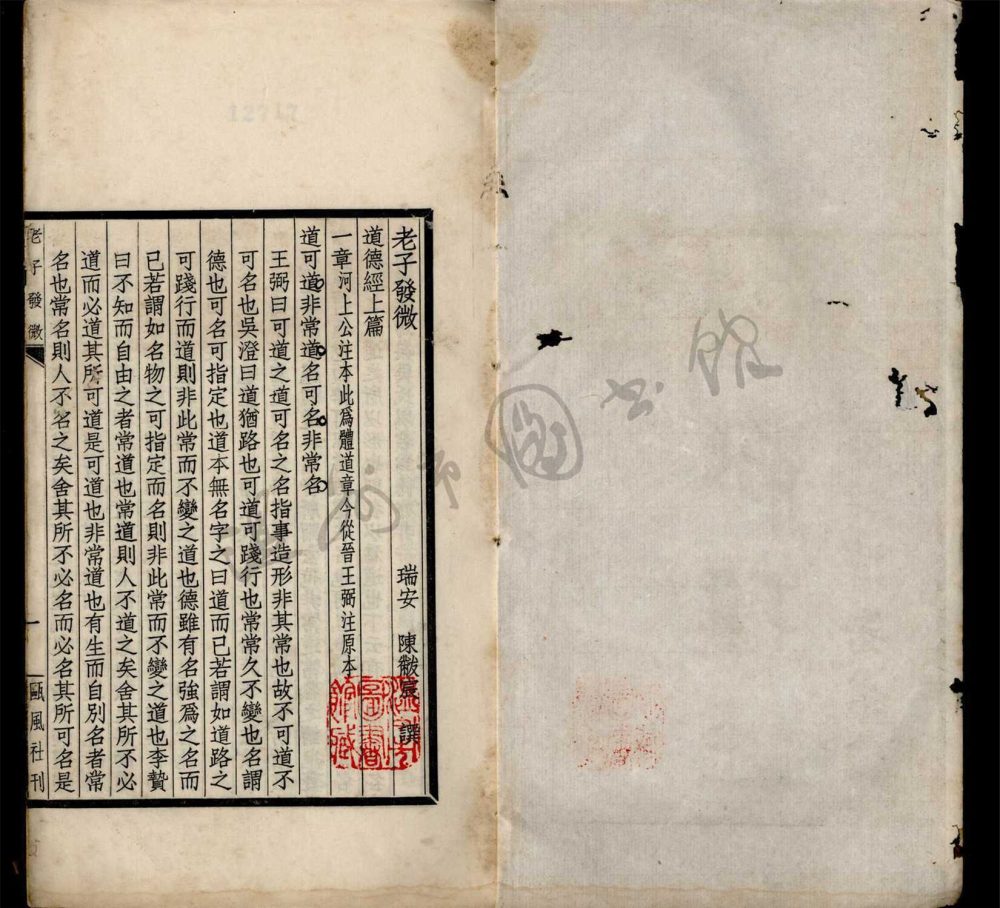 老子發微
瑞安 陳黻宸 譔
道德經上篇
一章河上公注本此爲體道章今從晉王弼注原本
道可道非常道名可名非常名
王弼曰可道之道可名之名指事造形非其常也故不可道不
可名也吳澄曰道猶路也可道可踐行也常常久不變也名謂
德也可名可指定也道本無名字之曰道而已若謂如道路之
可踐行而道則非此常而不變之道也德雖有名強爲之名而
已若謂如名物之可指定而名則非此常而不變之道也李贄
曰不知而自由之者常道也常道則人不道之矣舍其所不必
道而必道其所可道是可道也非常道也有生而自別名者常
名也常名則人不名之矣舍其所不必名而必名其所可名是
老子發微
一
甌風社刊
溫州市圖書館